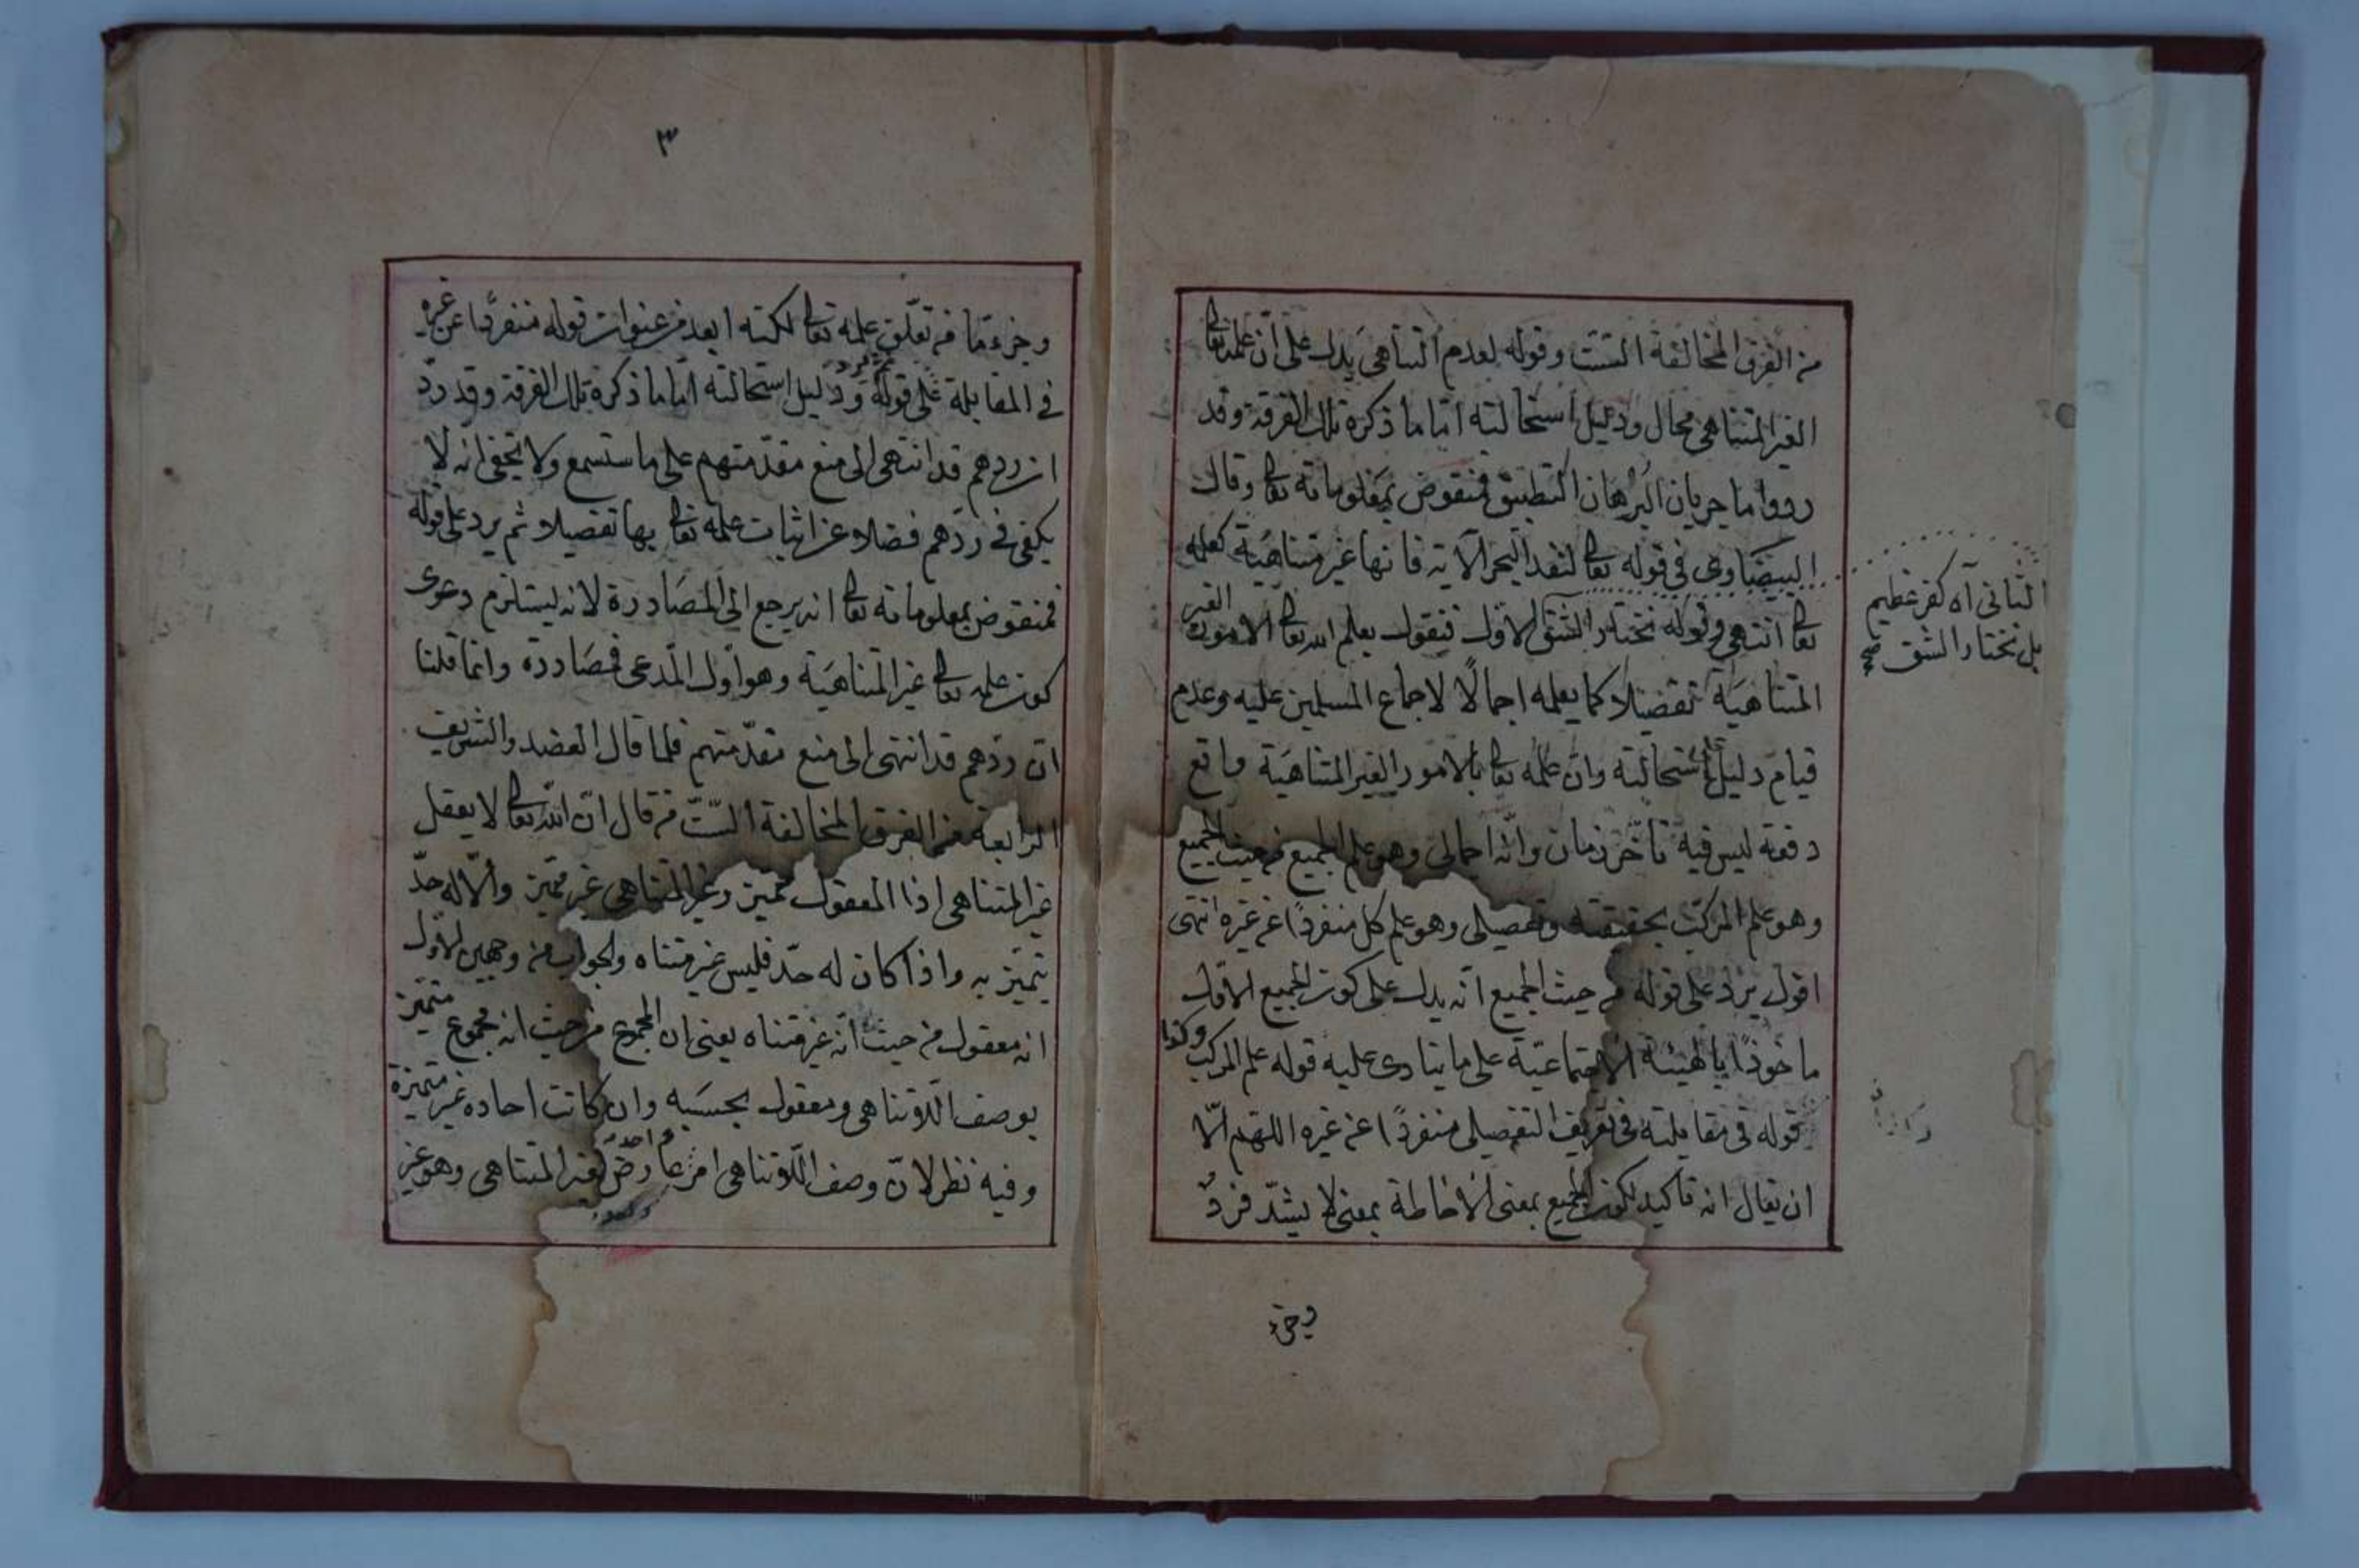 من الفرق المخالفة الستّ وقوله لعدم التناهى يدل على ان علمه تعالى
الغير المتناهى محال ودليل استحالته اما ما ذكره تلك الفرقة وقد
ردوا ما جريان البرهان التطبيق فمنقوض بمعلوماته تعالى وقال
البيضاوى فى قوله تعالى لنفد البحر الآية فانها غير متناهية كعلمه
تعالى انتهى وقوله نختار الشق الاول فيقول يعلم الله تعالى الامور الغير
المتناهية تفضيلا كما يعلمه اجمالًا لاجماع المسلمين عليه وعدم
قيام دليل استحالته وان علمه تعالى بالامور الغير المتناهية واقع
دفعة ليس فيه تأخر زمان وانه اجمالى وهو علم الجميع من حيث الجميع
وهو علم المركب بحقيقته وتفصيلى وهو علم كل منفردًا عن غيره انتهى
اقول يرد على قوله من حيث الجميع انه يدل على كون الجميع الاول
ماخوذًا بالهيئة الاجتماعية على ما ينادى عليه قوله علم المركب وكذا
قوله فى مقابلته فى تعريف التفصيلى منفردًا عن غيره اللهم الّا
ان يقال انه تاكيد لكون الجميع بمعنى الاحاطة بمعنى لا يشذّ فردٌ
وجزء
الثانى آه كفر عظيم
بل نختار الشق صح
٣
وجزء ما من تعلّق علمه تعالى لكنه ابعد من عنوان قوله منفردًا عن غيره
فى المقابلة على قوله ودليل استحالته اما ما ذكره تلك الفرقة وقد ردّ
ان ردهم قد انتهى الى منع مقدّمتهم على ما ستسمع ولا يخفى انه لا
يكفى فى ردّهم فضلا عن اثبات علمه تعالى بها تفضيلا ثم يرد على قوله
فمنقوض بمعلوماته تعالى انه يرجع الى المصادرة لانه يستلزم دعوى
كون علمه تعالى غير المتناهية وهو اول المدعى فمصادرة وانما قلنا
ان ردّهم قد انتهى الى منع مقدّمتهم فلما قال العضد والشريف
الرابعة من الفرق المخالفة الستّ من قال انّ الله تعالى لا يعقل
غير المتناهى اذا المعقول متميز وغير المتناهى غير متميز والّا له حدّ
يتميّز به واذا كان له حدّ فليس غير متناه والجواب من وجهين الاول
انه معقول من حيث انّه غير متناه يعنى ان المجموع من حيث انه مجموع متميّز
بوصف اللّاتناهى ومعقول بحسبه وان كانت احاده غير متميزة
وفيه نظر لانّ وصف اللّاتناهى امر عارض لغير المتناهى وهو غير